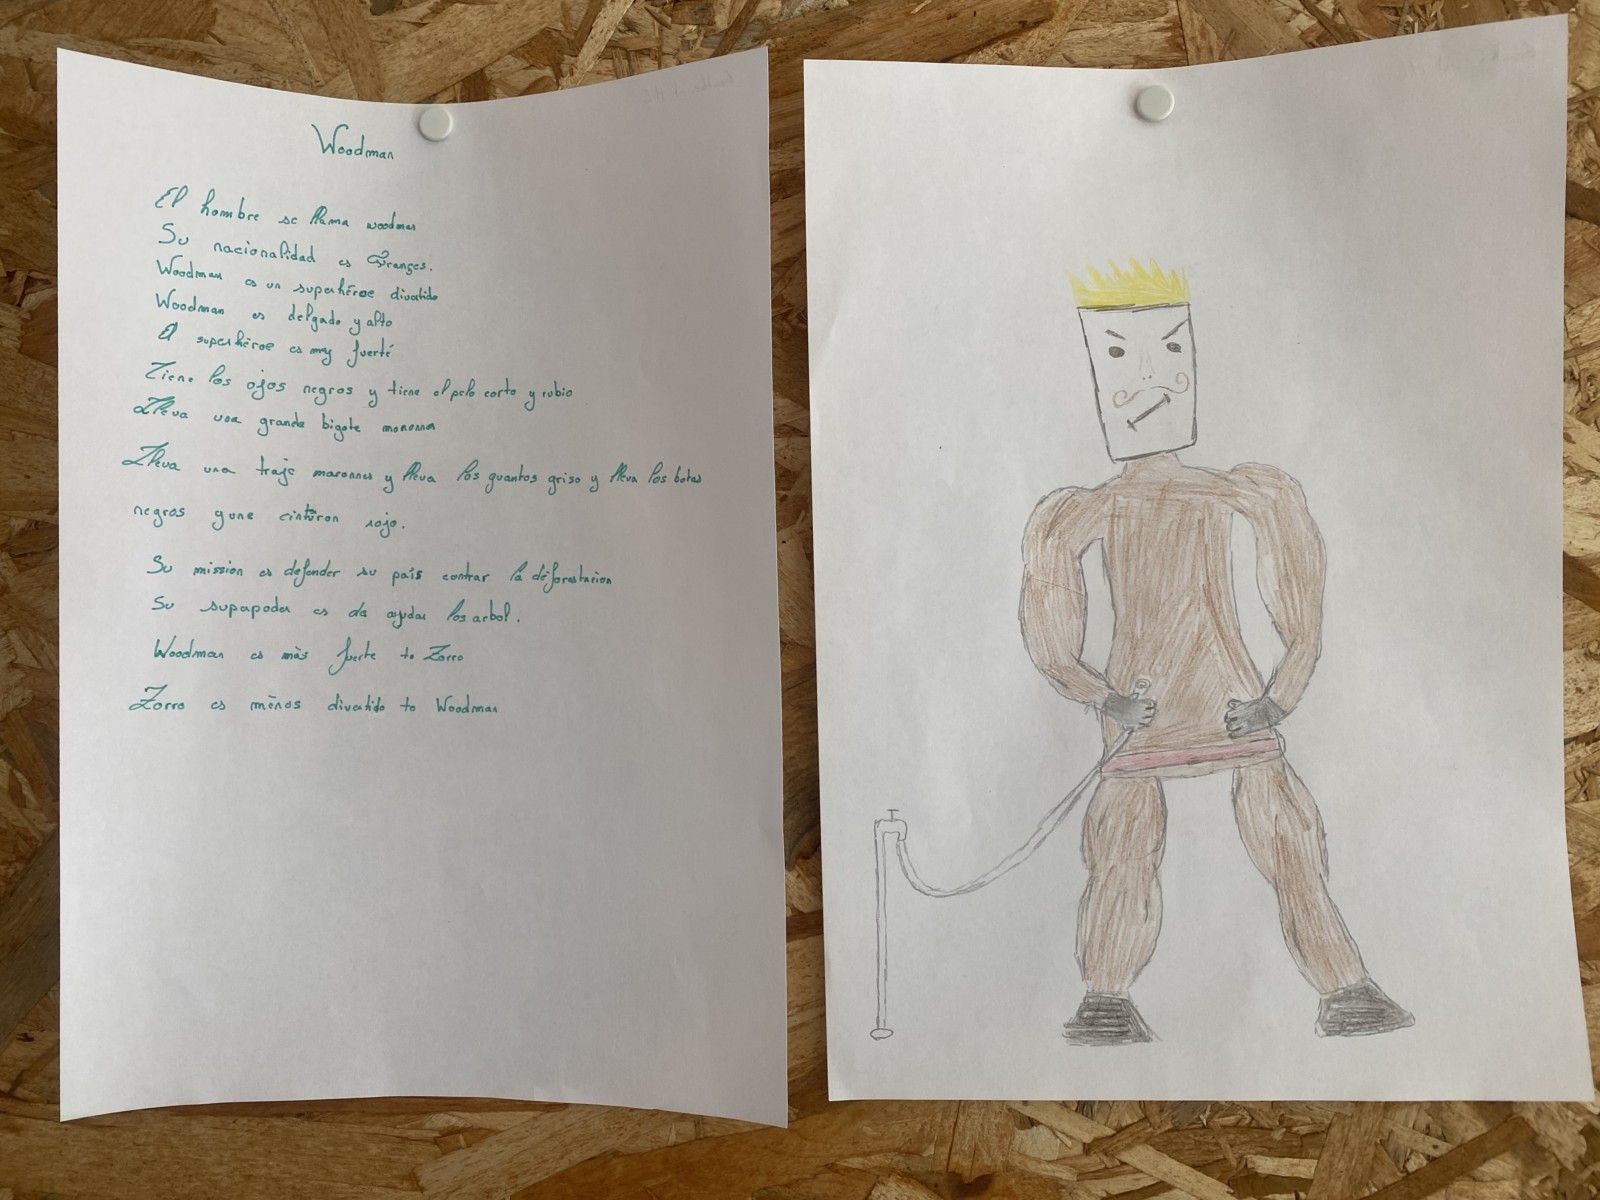 Woodman
El hombre se llama woodman
Su nacionalidad es françes.
Woodman es un superhéroe divertido
Woodman es delgado y alto
El superhéroe es muy fuerté
Tiene los ojos negros y tiene el pelo corto y rubio
Lleva una grande bigote
Lleva una traje maronnes y lleva los guantos griso y lleva los botas
negros y une cintûron rojo.
Su mission es defender su país contrar la déforestacion
Su superpoder es de ayudar los arbol.
Woodman es màs fuerte to Zorro
Zorro es ménos divertido to Woodman